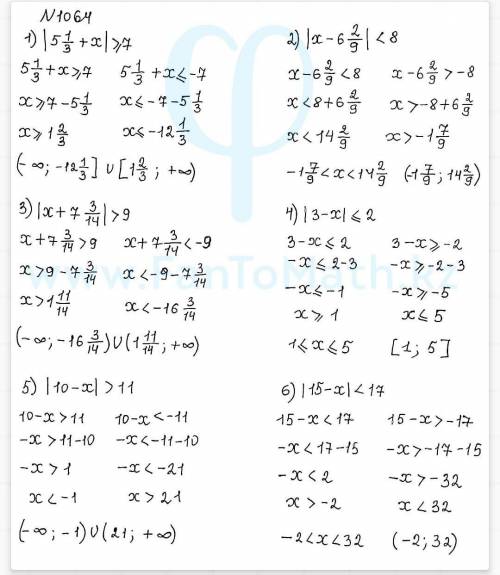 N1064
1) |5 1/3 + x| ⩾ 7
5 1/3 + x ⩾ 7 5 1/3 + x ⩽ -7
x ⩾ 7 - 5 1/3 x ⩽ -7 - 5 1/3
x ⩾ 1 2/3 x ⩽ -12 1/3
(-∞; -12 1/3] ∪ [1 2/3; +∞)
2) |x - 6 2/9| < 8
x - 6 2/9 < 8 x - 6 2/9 > -8
x < 8 + 6 2/9 x > -8 + 6 2/9
x < 14 2/9 x > -1 7/9
-1 7/9 < x < 14 2/9 (-1 7/9; 14 2/9)
3) |x + 7 3/14| > 9
x + 7 3/14 > 9 x + 7 3/14 < -9
x > 9 - 7 3/14 x < -9 - 7 3/14
x > 1 11/14 x < -16 3/14
(-∞; -16 3/14) ∪ (1 11/14; +∞)
4) |3 - x| ⩽ 2
3 - x ⩽ 2 3 - x ⩾ -2
-x ⩽ 2 - 3 -x ⩾ -2 - 3
-x ⩽ -1 -x ⩾ -5
x ⩾ 1 x ⩽ 5
1 ⩽ x ⩽ 5 [1; 5]
5) |10 - x| > 11
10 - x > 11 10 - x < -11
-x > 11 - 10 -x < -11 - 10
-x > 1 -x < -21
x < -1 x > 21
(-∞; -1) ∪ (21; +∞)
6) |15 - x| < 17
15 - x < 17 15 - x > -17
-x < 17 - 15 -x > -17 - 15
-x < 2 -x > -32
x > -2 x < 32
-2 < x < 32 (-2; 32)
www.FanToMath.kz